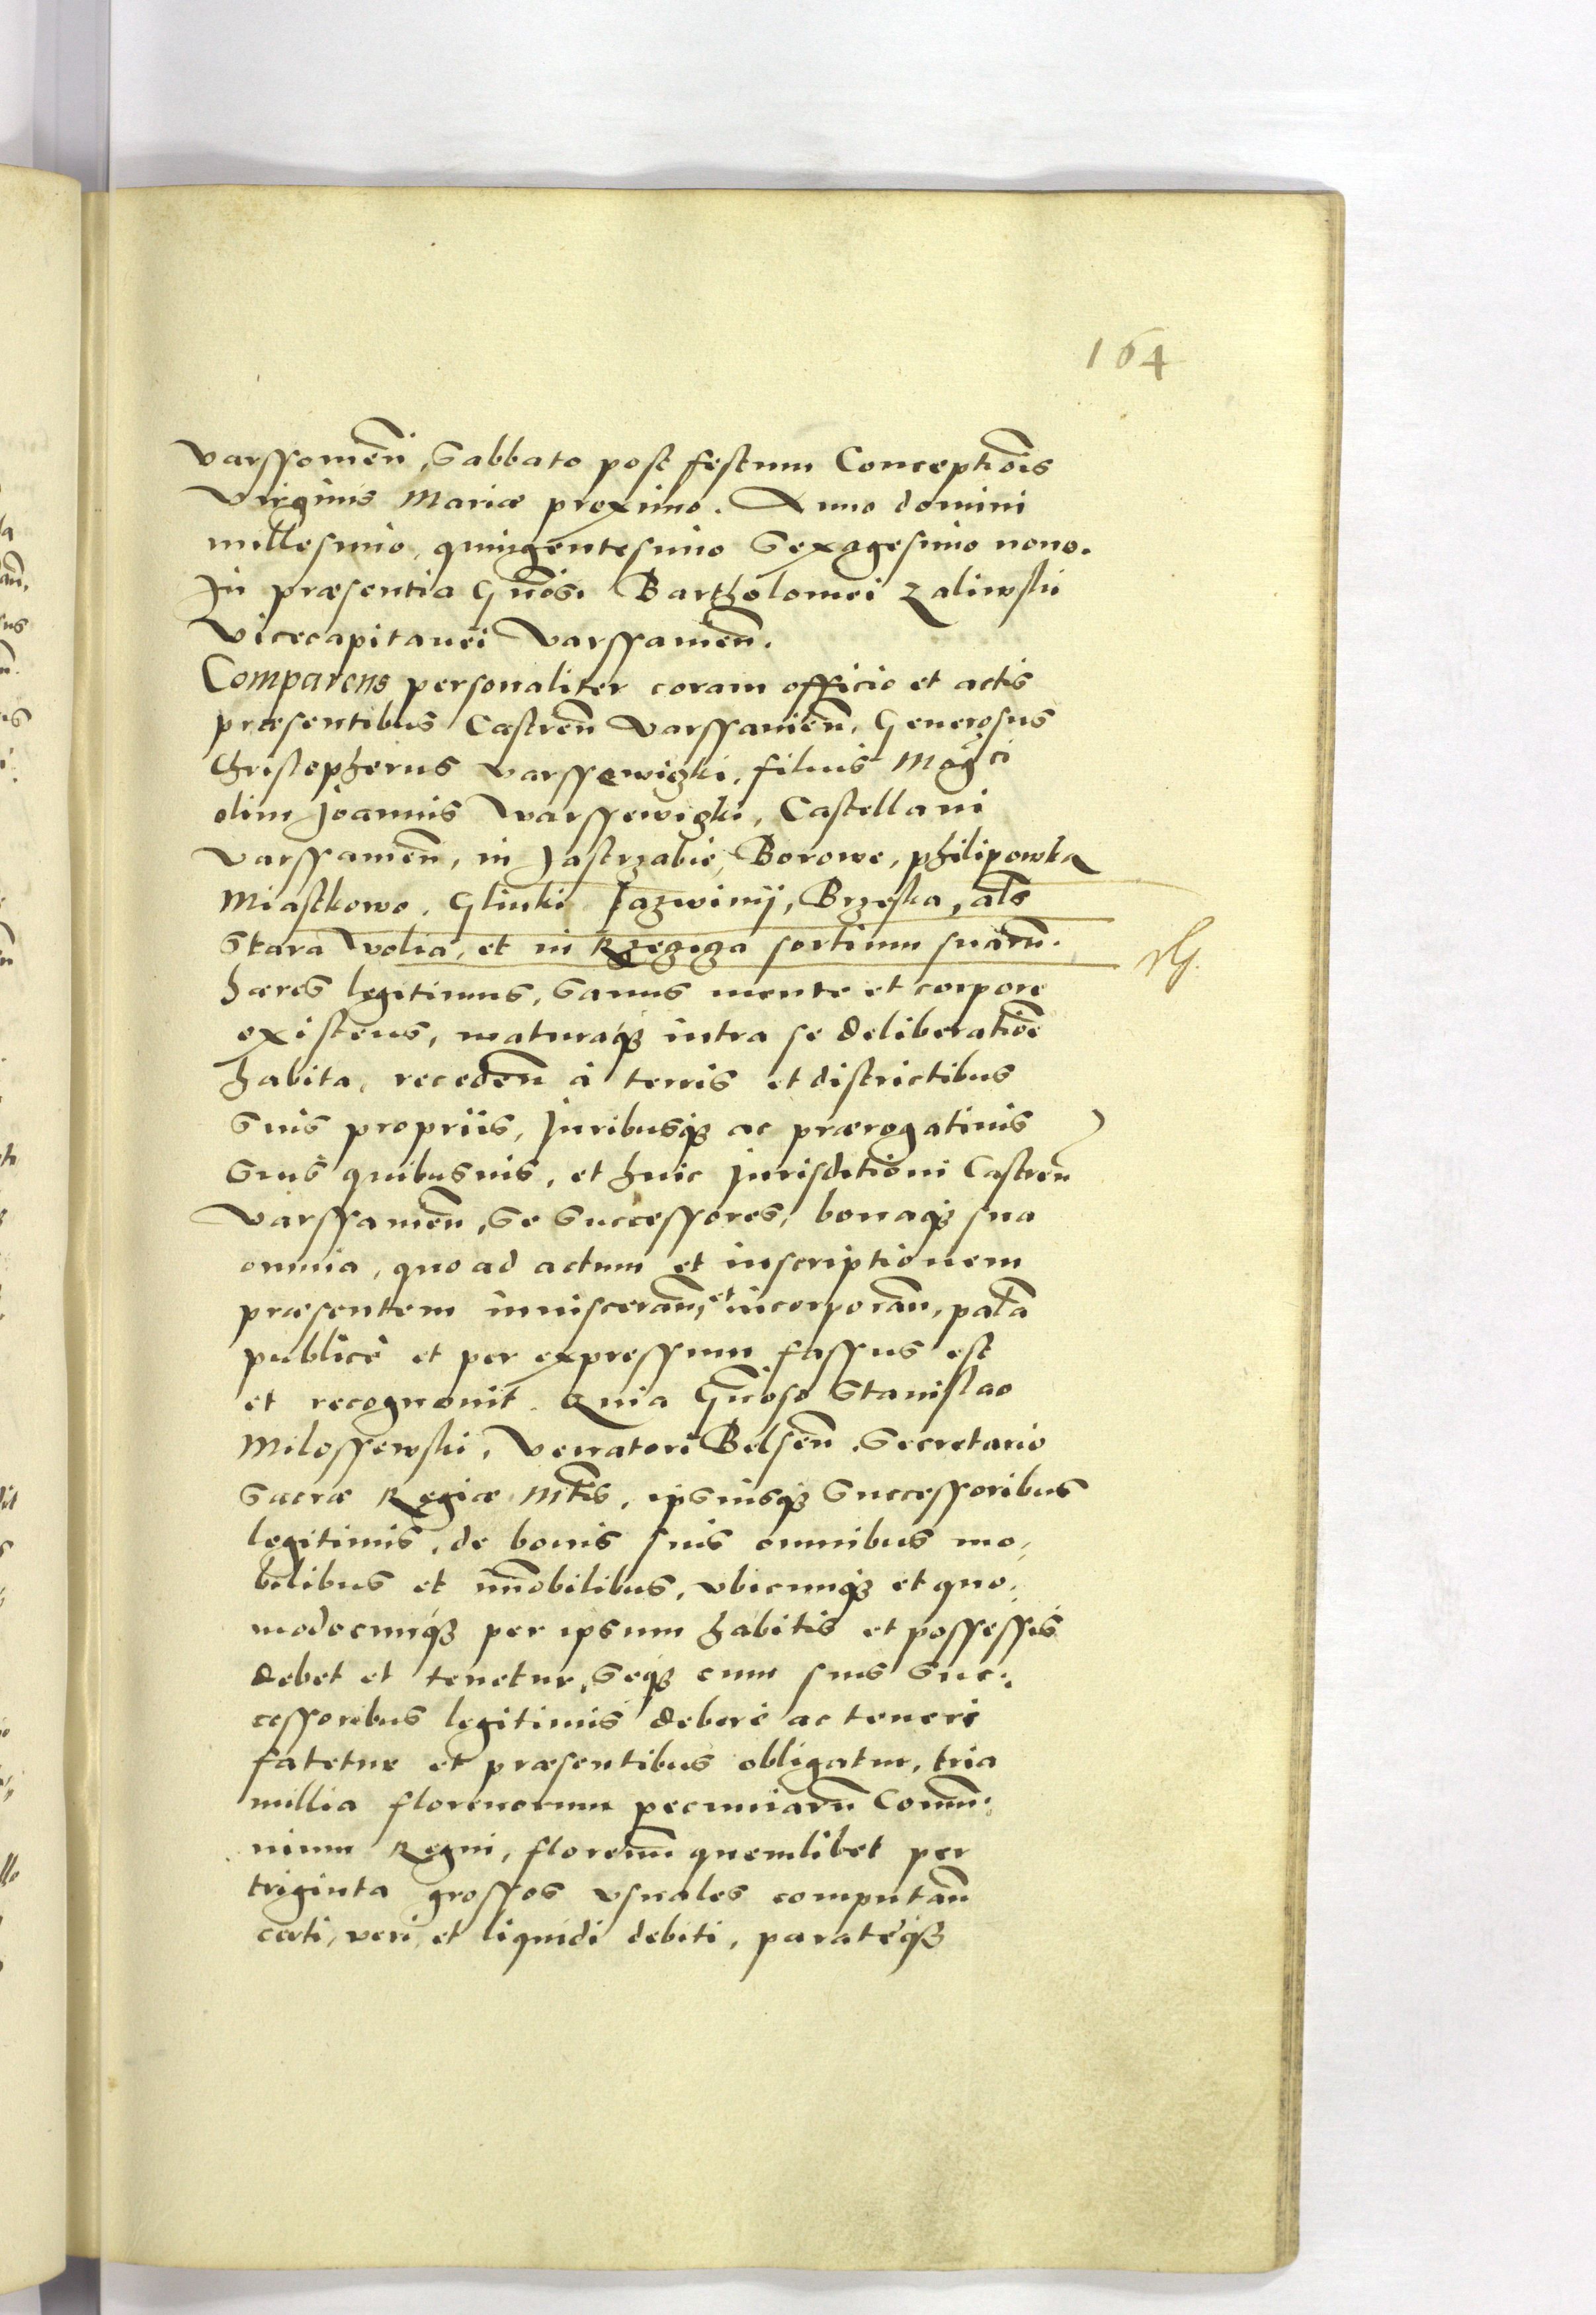 164
varssouien̄, Sabbato post festum Conceptiōis
Virginis Mariæ proximo. Anno domini
millesimo, quingentesimo Sexagesimo nono.
In præsentia Gn̄osi. Bartholomei Zaliwski
Vicecapitanei Varssauien̄.
Comparens personaliter coram officio et actis
præsentibus Castren̄ Varssauien̄, Generosus
Christopherus Varssewizki, filius Magci
olim Joannis Warssewizki, Castellani
Varssauien̄, in Jastrzabie, Borowe, philipowka
Miastkowo, Glinki Jazwinÿ, Brzeska, al̄s
Stara Wolia, et in Rzegiga sortium suarū.
hæres legitimus, Sanus mente et corpore
existens, maturaq3 intra se deliberatiōe
habita, receden̄ à terris et districtibus
Suis propriis, Juribusq3 ac prærogatiuis
Suis quibusuis, et huic Jurisditioni Castren̄
Varssauien̄, Se Successores, bonaq3 sua
omnia, quo ad actum et inscriptionem
præsentem inuisceran̄, et incorporan̄, palā
publicè et per expressum fassus est
et recognouit. Quia Gn̄oso Stanislao
Milossewski, Venatori Belsen̄, Secretario
Sacræ Regiæ Mt̄is, ipsiusq3 Successoribus
legitimis, de bonis suis omnibus mo,
bilibus et im̄obilibus, vbicunq3 et quo,
modocunq3 per ipsum habitis et possessis
debet et tenetur, Seq3 cum suis Suc,
cessoribus legitimis debere ac teneri
fatetur et præsentibus obligatur, tria
millia florenorum pecuniarū Com̄u,
nium Regni, florenū quemlibet per
triginta grossos vsuales computan̄
certi, veri, et liquidi debiti, paratæq3